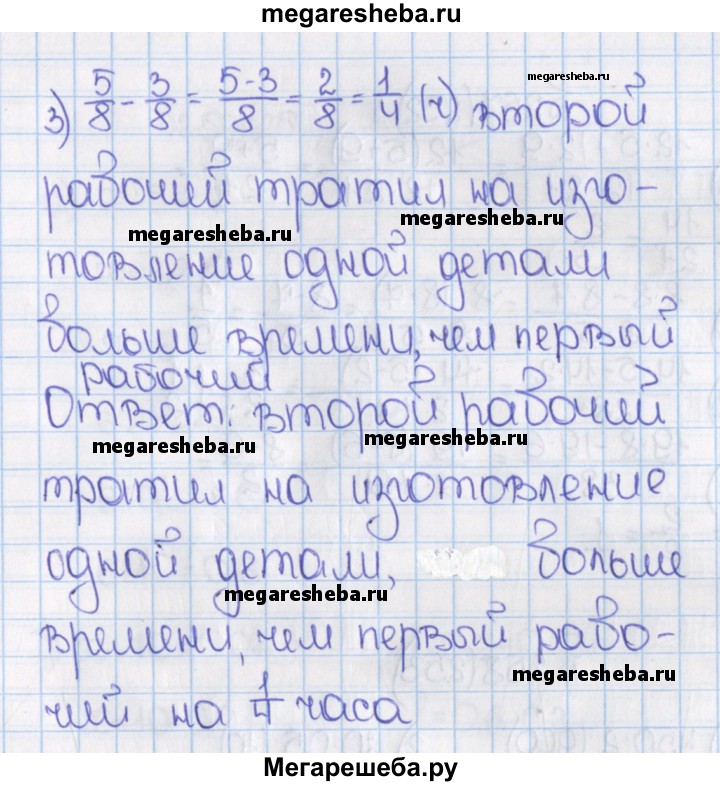 megaresheba.ru
3) 5/8 - 3/8 = 5-3/8 = 2/8 = 1/4 (ч) второй
megaresheba.ru
рабочий тратил на изго-
megaresheba.ru
megaresheba.ru
товление одной детали
больше времени, чем первый
рабочий
Ответ: второй рабочий
megaresheba.ru
megaresheba.ru
тратил на изготовление
одной детали, больше
megaresheba.ru
времени, чем первый рабо-
megaresheba.ru
чий на 1/4 часа
Мегарешеба.ру